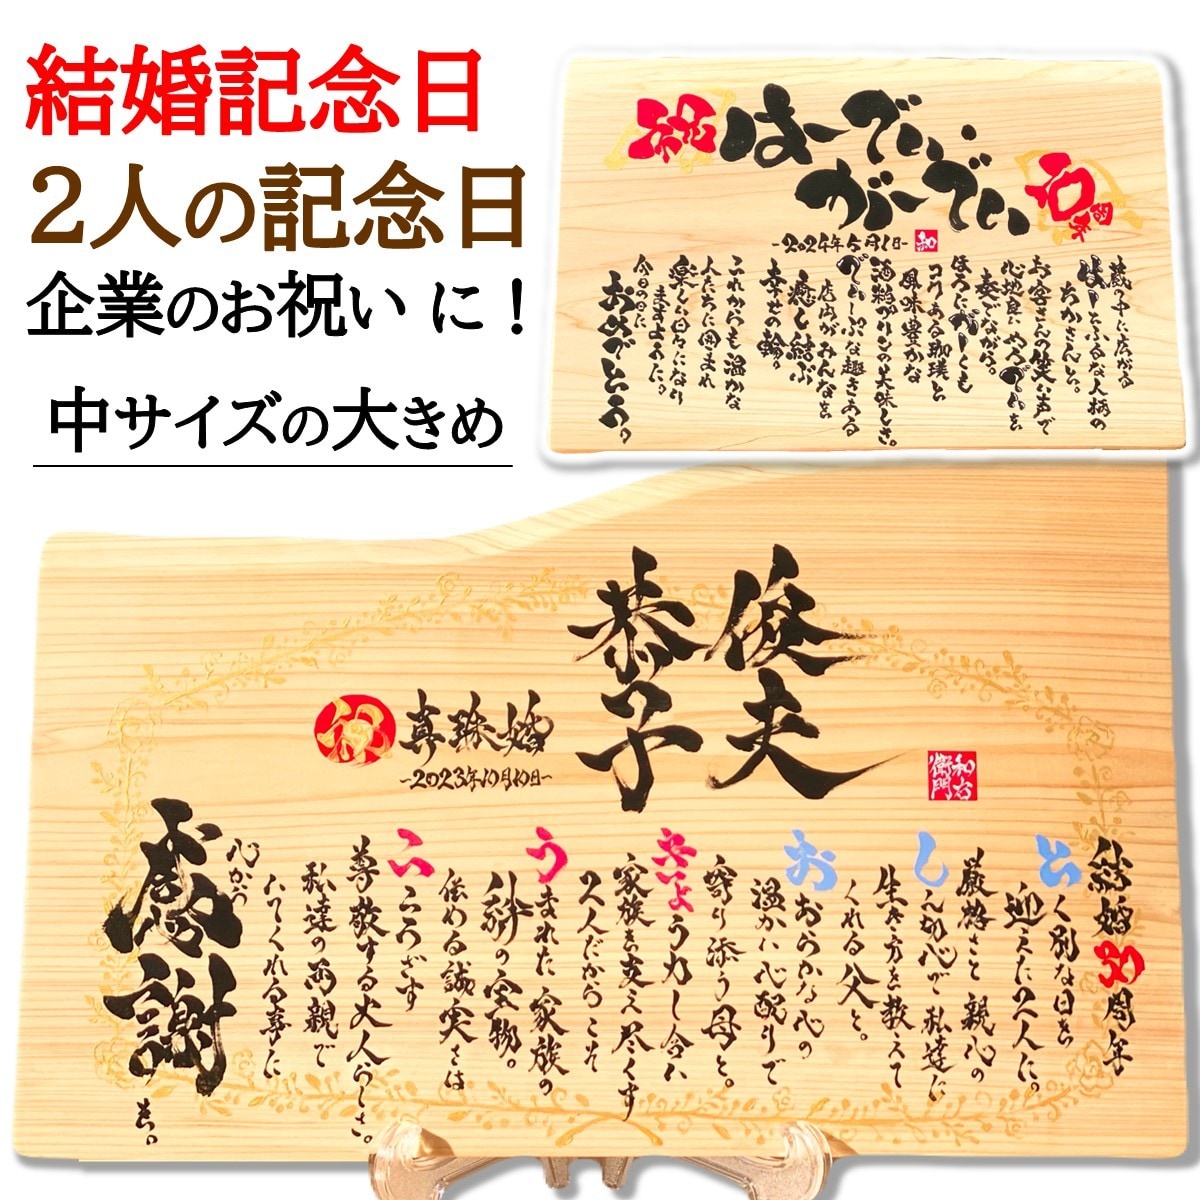 結婚記念日
2人の記念日
企業のお祝いに！
中サイズの大きめ
祝
はーでい・
がーでい
10周年
-2024年5月1日-
和
蔵の中に広がる
はーとふるな人柄の
ちかさんと。
お客さんの笑い声で
心地良いめろでいを
奏でながら。
ほろにがーくも
コクのある珈琲と
風味豊かな
酒粕ぷりんの美味しさ。
でぃーぷな趣きある
店内がみんなを
癒し結ぶ
幸せの輪。
これからも温かな
人たちに囲まれ
楽しい日々になり
ますように。
今日の日に
おめでとう。
俊夫
恭子
祝
真珠婚
-2023年10月10日-
和右衛門
結婚30周年
とく別な日を
迎えた2人に。
厳格さと親心の
しん切心で私達に
生き方を教えて
くれる父と。
おおらかな心の
温かい心配りで
寄り添う母と。
きょう力し合い
家族を支え尽くす
2人だからこそ
うまれた家族の
絆の宝物。
秘める誠実とは
こころざす
尊敬する丈人らしさ。
私達の両親で
いてくれる事に
心から
感謝
を。